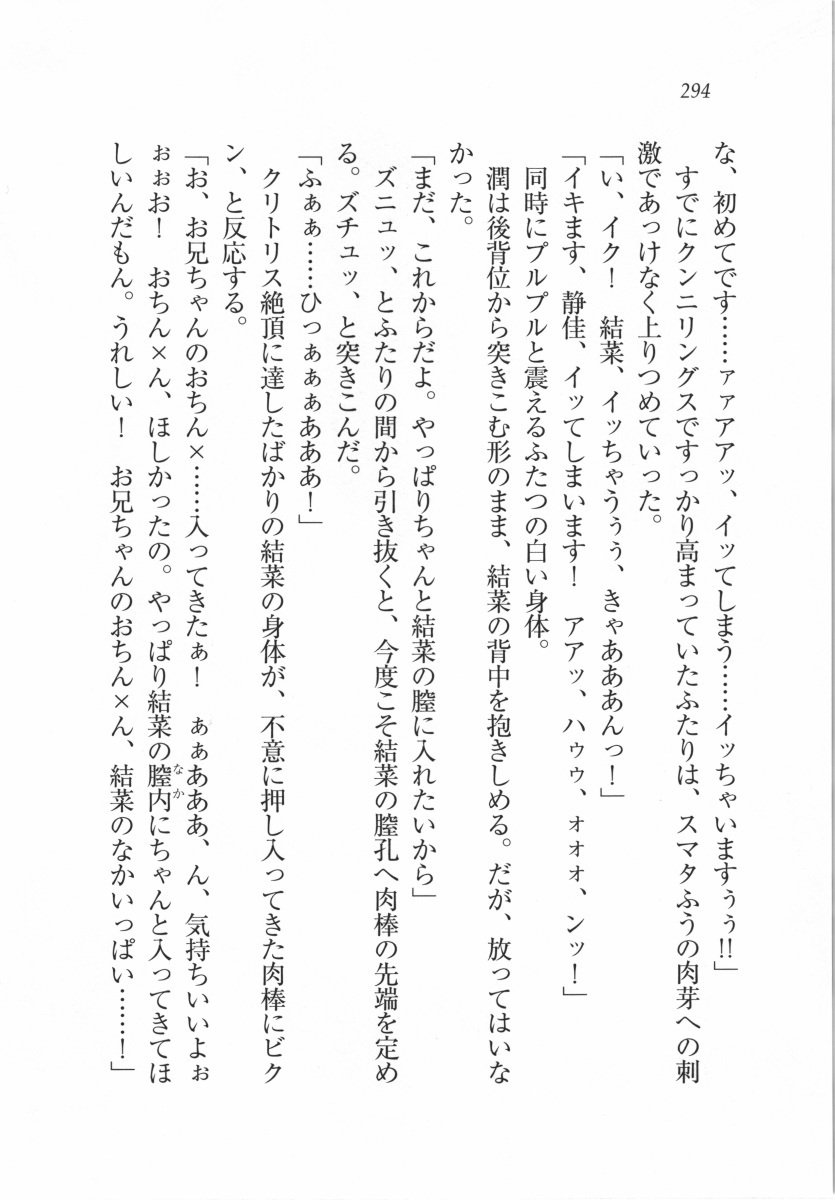 294
な、初めてです……ァァアアッ、イッてしまう……イッちゃいますぅぅ!!」
すでにクンニリングスですっかり高まっていたふたりは、スマタふうの肉芽への刺
激であっけなく上りつめていった。
「い、イク！　結菜、イッちゃうぅぅ、きゃあああんっ！」
「イキます、静佳、イッてしまいます！　アアッ、ハゥゥ、ォォォ、ンッ！」
同時にプルプルと震えるふたつの白い身体。
潤は後背位から突きこむ形のまま、結菜の背中を抱きしめる。だが、放ってはいな
かった。
「まだ、これからだよ。やっぱりちゃんと結菜の膣に入れたいから」
ズニュッ、とふたりの間から引き抜くと、今度こそ結菜の膣孔へ肉棒の先端を定め
る。ズチュッ、と突きこんだ。
「ふぁぁ……ひっぁぁぁあああ！」
クリトリス絶頂に達したばかりの結菜の身体が、不意に押し入ってきた肉棒にビク
ン、と反応する。
「お、お兄ちゃんのおちん×……入ってきたぁ！　ぁぁあああ、ん、気持ちいいよぉ
ぉぉお！　おちん×ん、ほしかったの。やっぱり結菜の膣内なかにちゃんと入ってきてほ
しいんだもん。うれしい！　お兄ちゃんのおちん×ん、結菜のなかいっぱい……！」